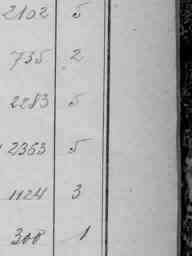 2102 5
735 2
2283 5
2363 5
1124 3
308 1